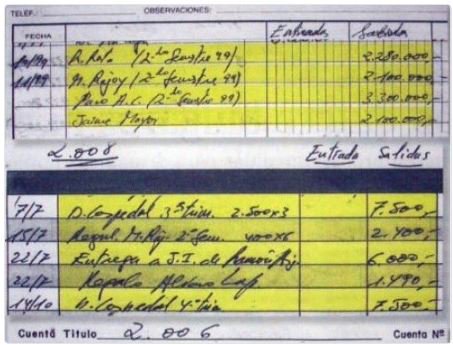 TELEF.: OBSERVACIONES:
FECHA Entradas Salidas
R. Rato (2º Semestre 99) 2.280.000,-
11/99 M. Rajoy (2º Semestre 99) 2.100.000,-
Paco A.C. (2º Semestre 99) 3.300.000,-
Jaime Mayor 2.100.000,-
2.008 Entrada Salidas
7/7 D. Cospedal 3º trim. 2.500x3 7.500,-
15/7 M. Raj. 2º Sem. 400x6 2.400,-
22/7 Entrega a J.I. de 6.000,-
22/7 Regalo 1.490,-
14/10 D. Cospedal 4º trim 7.500,-
Cuenta Titulo 2.006 Cuenta Nº